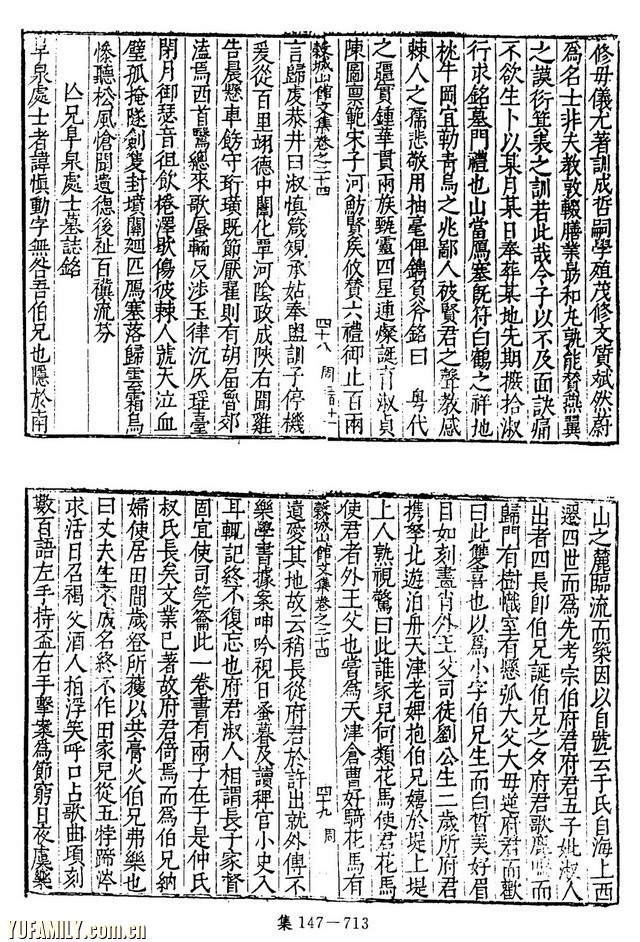 修母儀尤著訓成哲嗣學殖茂修文質斌然蔚
為名士非夫教敦輟膳業勗和丸孰能替燕翼
之謨衍箕裘之訓若此哉今子以不及面訣痛
不欲生卜以某月某日奉葬某地先期摭拾淑
行求銘墓門禮也山當鴈塞旣符白鶴之祥地
桃牛岡宜勒青烏之兆鄙人被賢君之聲教感
棘人之孺悲敬用抽毫俾鐫負穸銘曰 粵代
之疆賓鍾華貫兩族甄靈四星連燦誕育淑貞
陳圖禀範宋子河魴賢矣攸贊六禮御止百兩
榖城山館文集卷之二十四
四十八 周 二百十一
言歸虔恭井臼淑慎箴規承姑奉盥訓子停機
爰從百里翊德中闈化覃河陰政成陝右聞雞
告晨懸車飭守珩璜既節厭翟則有胡屆魯郊
溘焉西首鷖總來歌蜃輀反涉玉律沉灰瑤臺
閉月御瑟音徂飲棬澤歇傷彼棘人號天泣血
壁孤掩隧劍雙封墳關廻匹鴈塞落歸雲霜烏
慘聽松風愴聞遺德後祉百禩流芬
亡兄阜泉處士墓誌銘
阜泉處士者諱慎動字無咎吾伯兄也隱於南
山之麓臨流而築因以自號云于氏自海上西
遷四世而為先考宗伯府君府君五子妣淑人
出者四長即伯兄誕伯兄之夕府君歌鹿鳴而
歸門有樹幟室有懸弧大父大母逆府君而歡
曰此雙喜也以為小字伯兄生而白皙美好眉
目如刻畫肖外王父司徒劉公生二歲所府君
携孥北遊泊舟天津老婢抱伯兄嬉於堤上堤
上人熟視驚曰此誰家兒何類花馬使君花馬
使君者外王父也嘗為天津倉曹好騎花馬有
榖城山館文集卷之二十四
四十九 周
遺愛其地故云稍長從府君於許出就外傅不
樂學書據案呻吟祝日蚤暮及讀稗官小史入
耳輒記終不復忘也府君淑人相謂長子家督
固宜使司筦龠此一卷書有兩子在于是仲氏
叔氏長矣文業已著故府君倚焉而為伯兄納
婦使居田間歲登所穫以共膏火伯兄弗樂也
曰丈夫生不成名終不作田家兒從五牸蹄涔
求活日召褐父酒人拍浮笑呼口占歌曲頃刻
數百語左手持盃右手擊案為節窮日夜虞樂
集 147－713
YUFAMILY.com.cn